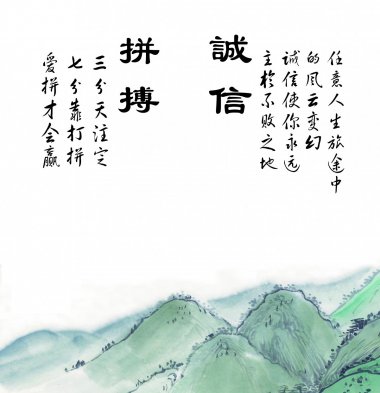 任意人生旅途中
的风云变幻
诚信使你永远
主於不败之地
誠信
拼搏
三分天注定
七分靠打拼
爱拼才会赢